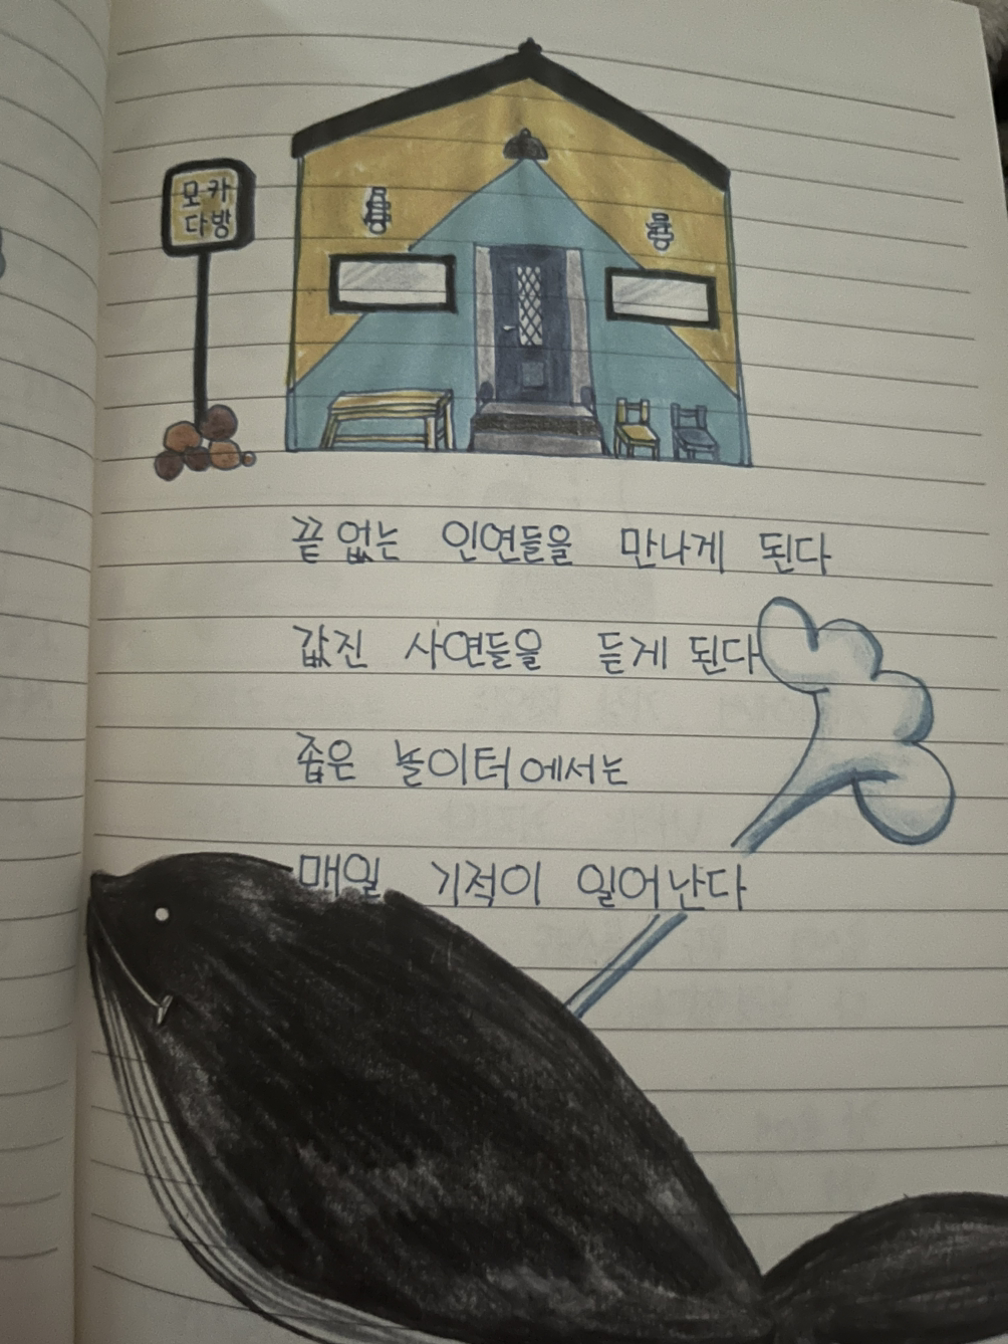 모카
다방
끝없는 인연들을 만나게 된다
값진 사연들을 듣게 된다
좁은 놀이터에서는
매일 기적이 일어난다